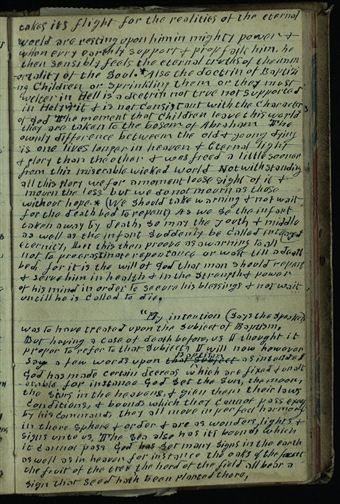 takes its flight for the realities of the eternal
world are resting upon him in mighty power &
when evry earthly support & prop fails him, he
then sensibly feels the eternal truths of the imm
ortality of the Soul. * Also the doctrin of Baptising
ing Children or sprinkling them or they must
welter in Hell is a doctrin not true not supported
in Holy writ & is not consistant with the Character
of god The moment that children leave this world
they are taken to the bosom of Abraham. The
ownly difference between the old & young dying
is one lives longer in heaven & Eternal light
& glory than the other & was freed a little sooner
from this miserable wicked world Notwithstanding
all this glory we for a moment loose sight of it &
mourn the loss but we do not mourn as those
without hope. * (We should take warning & not wait
for the death bed to repent) As we see the infant
taken away by death, so may the youth & middle
as well as the infant suddenly be called into
eternity, Let this then proove as a warning to all
not to procrastinate repentance or wait till a death
bed, for it is the will of God that man should repent
& serve him in health & in the strength & power
of his mind in order to secure his blessings & not wait
untill he is called to die.
"My intention (says the speaker
was to have treated upon the subject of Baptism,
But having a case of death before us I thought it
proper to refer to that subject, I will now however
say a few words upon Baptism as intended
God has made certain decrees which are fixed & unalt
erable for instance God set the sun, the moon,
the stars in the heavens, & given them their laws
Conditions, & bounds which they cannot pass except
by his Commands, they all move in perfect harmony
in there sphere & order & are as wonders, lights &
signs unto us, The sea also has its bounds which
it cannot pass God has set many signs in the earth
as well as in heaven for instance the oaks of the forest
the fruit of the tree the herd of the field all bear a
sign that seed hath been planted there,